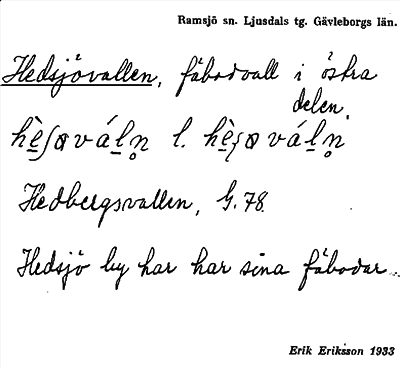 Ramsjö sn. Ljusdals tg. Gävleborgs län.
Hedsjövallen, fäbodvall i östra
delen.
l.
Hedbergsvallen, G. 78.
Hedsjö by har har sina fäbodar.
Erik Eriksson 1933